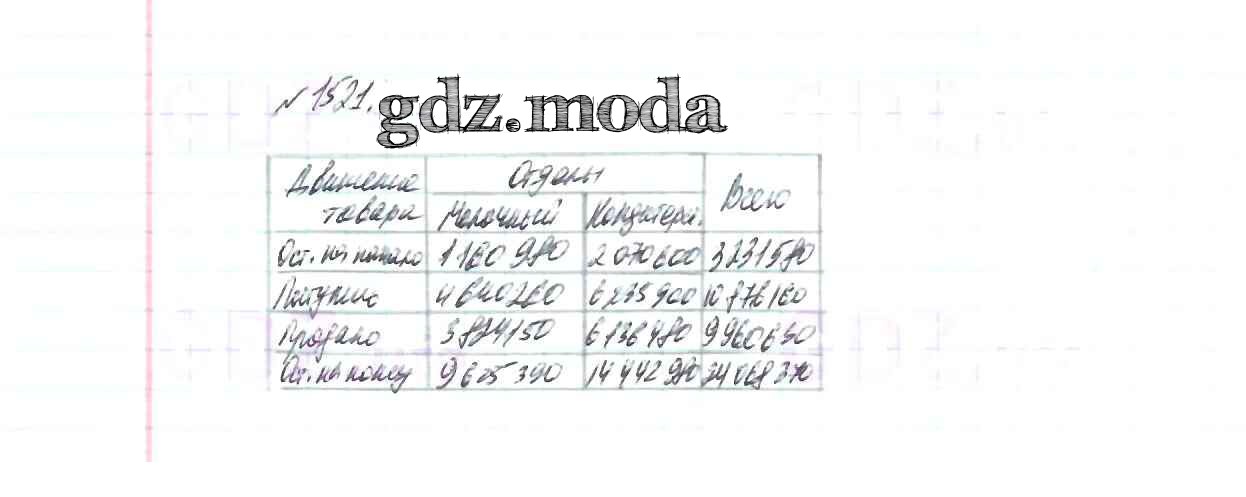 № 1521.
gdz.moda
Движение товара Отделы Всего
Молочный Кондитерск.
Ост. на начало 1 160 980 2 070 600 3 231 580
Поступило 4 640 260 6 235 900 10 876 160
Продано 3 824 150 6 136 480 9 960 630
Ост. на конец 9 625 390 14 442 980 24 068 370